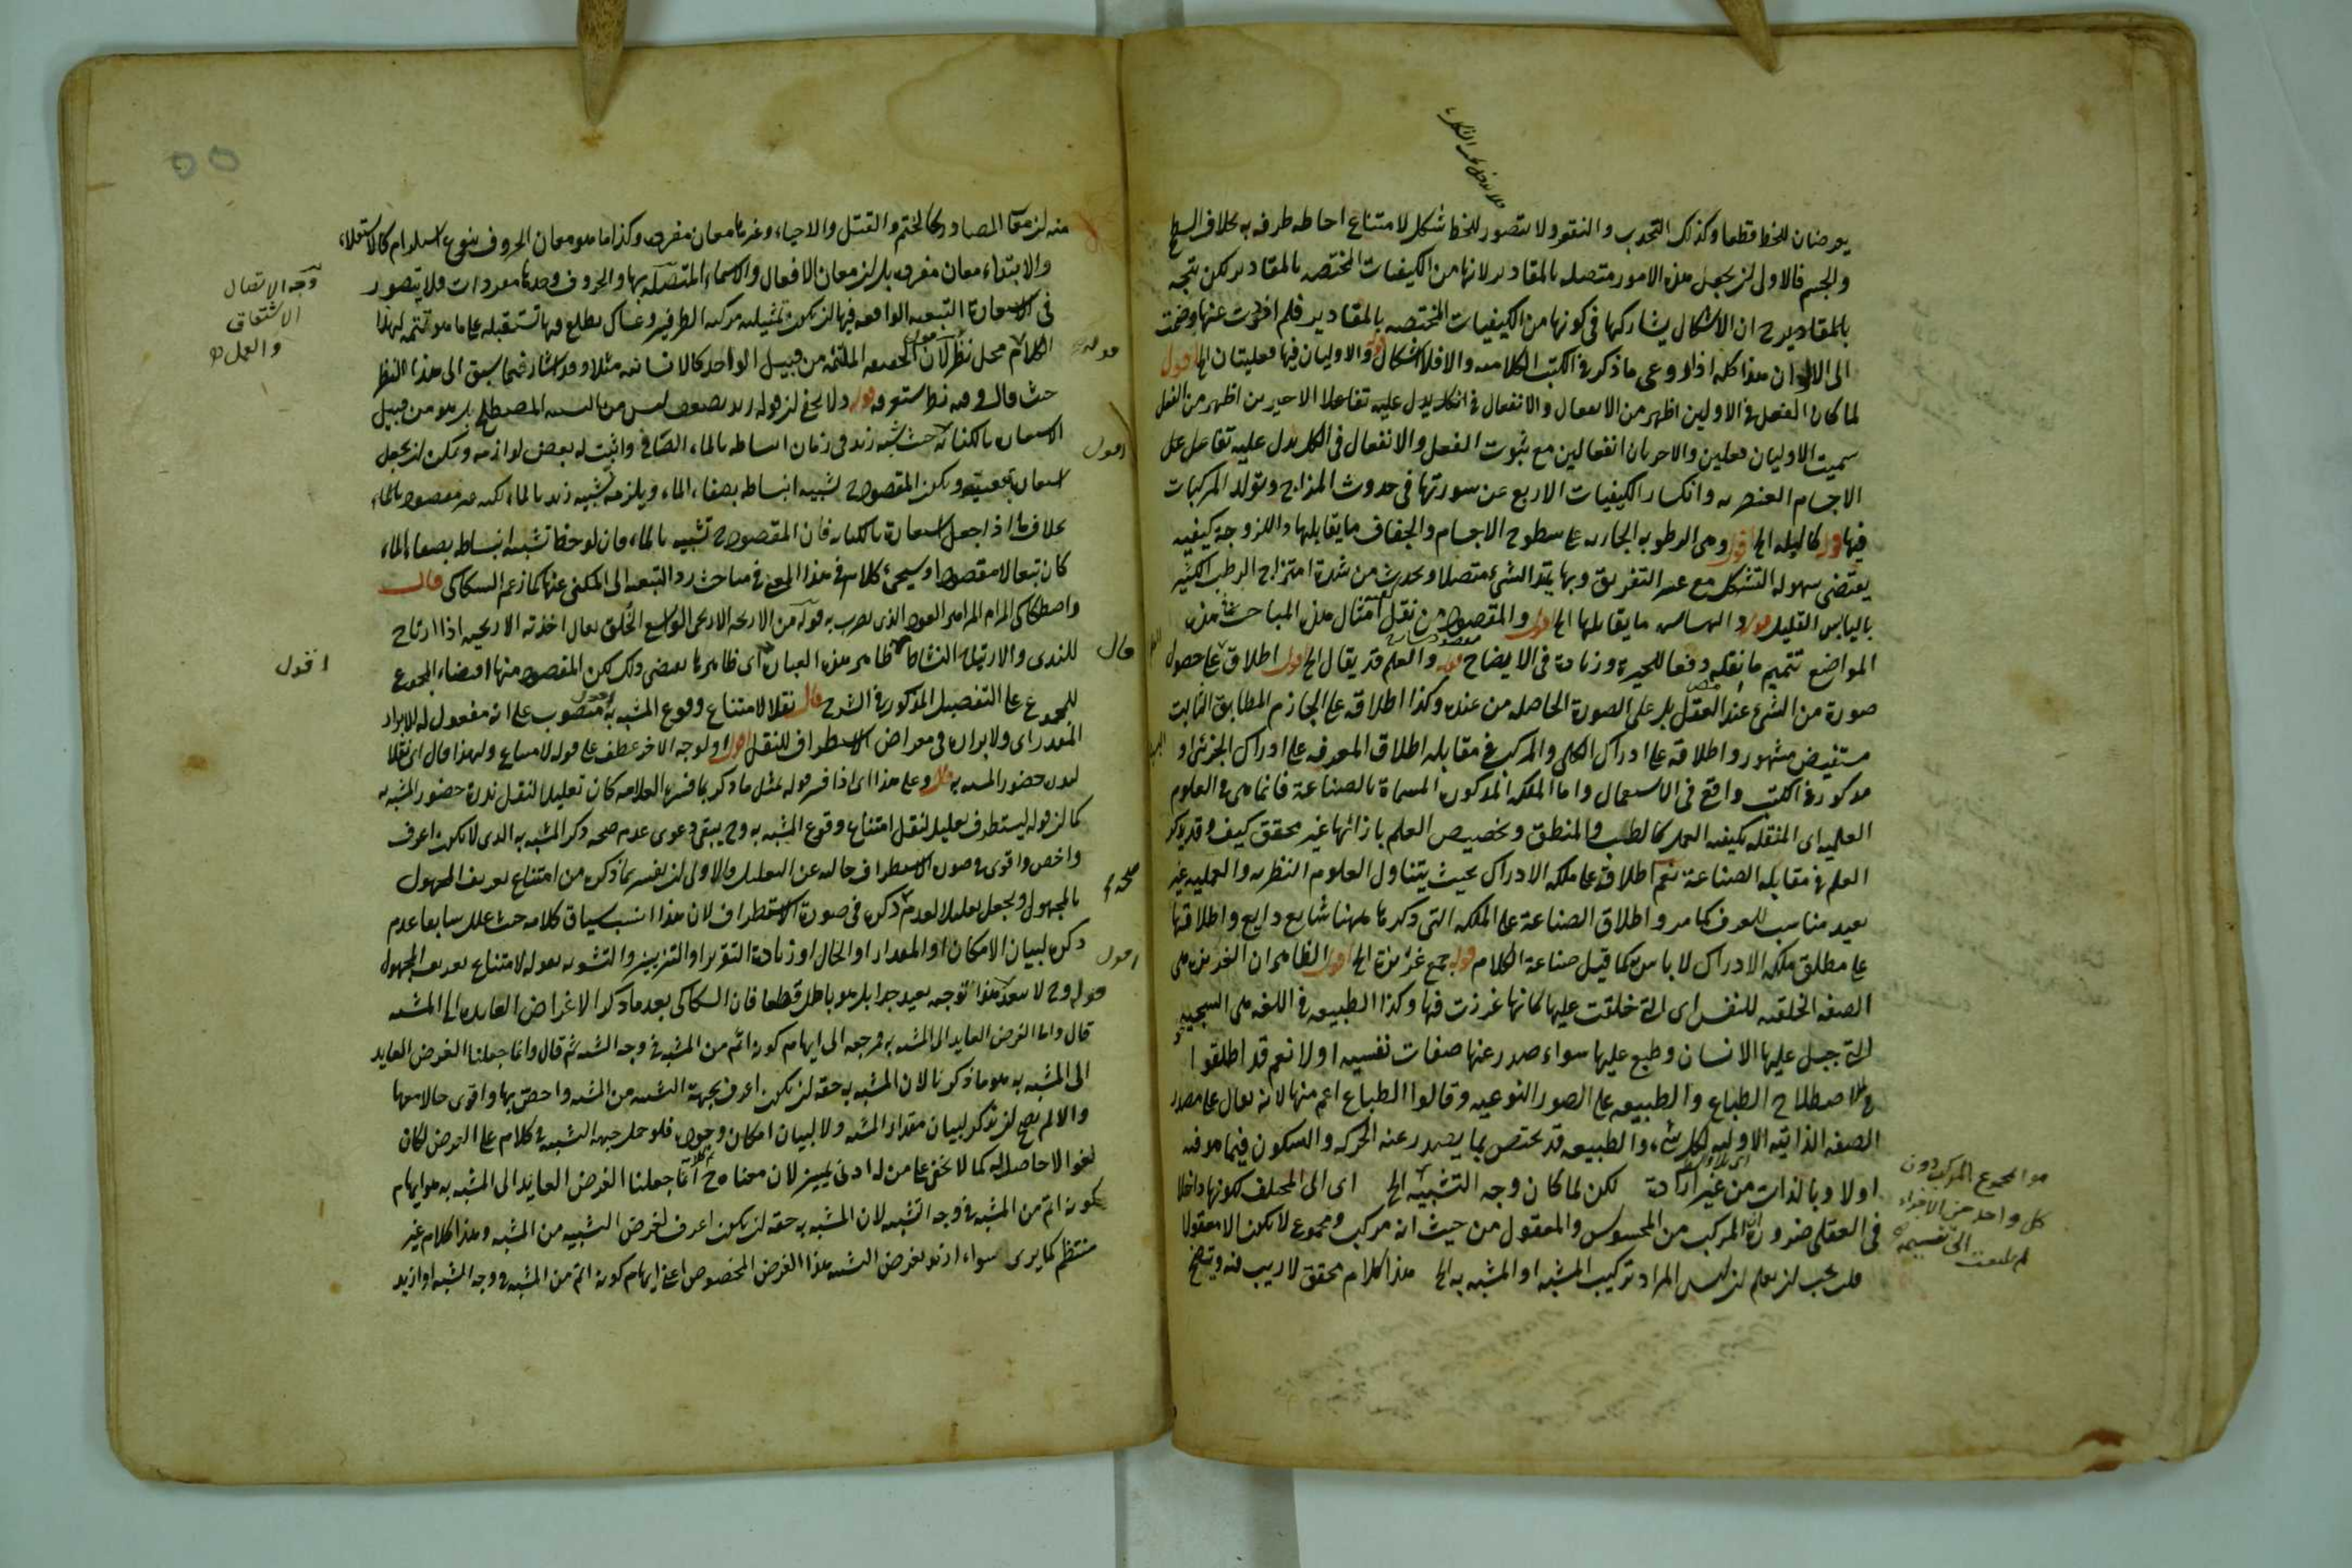 يعرضان للخط قطعا وكذلك التحدب والتقعر ولا يتصور للخط شكل لامتناع احاطه طرفه به بخلاف السطح
والجسم فالاولى ان يجعل هذه الامور متصله بالمقادير لانها من الكيفيات المختصه بالمقادير لكن يتجه
بالمقادير ح ان الاشكال يشاركها فى كونها من الكيفيات المختصه بالمقادير فلم اخرت عنها وضمت
الى الالوان هذا كله اذا روعى ما ذكر فى الكتب الكلاميه والا فلا اشكال قوله والاوليان فيها فعليتان الخ اقول
لما كان الفعل فى الاولين اظهر من الانفعال والانفعال فى الاخيرين اظهر من الفعل
سميت الاوليان فعليتين والاخريان انفعاليتين مع ثبوت الفعل والانفعال فى الكل يدل عليه تفاعل
الاجسام العنصريه وانكسار الكيفيات الاربع عن سورتها فى حدوث المزاج وتولد المركبات
فيها قوله كالبله الخ اقول وهى الرطوبه الجاريه على سطوح الاجسام والجفاف ما يقابلها واللزوجة كيفيه
يقتضى سهوله التشكل مع عسر التفريق وبها يمتد الشئ متصلا ويحدث من شدة امتزاج الرطب الكثير
باليابس القليل قوله والهشاشه ما يقابلها الخ اقول والمقصود من نقل امثال هذه المباحث فى هذه
المواضع تتميم ما نقله دفعا للحيرة وزيادة فى الايضاح قوله والعلم قد يقال الخ اقول اطلاق على حصول
صورة من الشئ عند العقل بل على الصورة الحاصله من عنده وكذا اطلاقه على الجازم المطابق الثابت
مستفيض مشهور واطلاقه على ادراك الكلى والمركب فى مقابله اطلاق المعرفه على ادراك الجزئى او
مذكور فى الكتب واقع فى الاستعمال واما الملكه المذكوره المسماة بالصناعة فانما هى فى العلوم
العلميه اى المتعلقه بكيفيه العمل كالطب والمنطق وتخصيص العلم بازائها غير محقق كيف وقد يذكر
العلم فى مقابله الصناعة نعم اطلاقه على ملكه الادراك بحيث يتناول العلوم النظريه والعمليه غير
بعيد مناسب للعرف كما مر واطلاق الصناعة على الملكه التى ذكرها ههنا شايع ذايع واطلاقها
على مطلق ملكه الادراك لا باس به كما قيل صناعة الكلام قوله جمع غريزة الخ اقول الظاهر ان الغريزه هى
الصفه الخلقيه للنفس اى التى خلقت عليها كانها غرزت فيها وكذا الطبيعه فى اللغه هى السجيه
التى جبل عليها الانسان وطبع عليها سواء صدر عنها صفات نفسيه اولا نعم قد اطلقوا
فى الاصطلاح الطباع والطبيعه على الصور النوعيه وقالوا الطباع اعم منها لانه يقال على مصدر
الصفه الذاتيه الاوليه لكل شئ والطبيعه قد يختص بما يصدر عنه الحركه والسكون فيما هو فيه
اولا وبالذات من غير ارادة لكن لما كان وجه التشبيه الخ اى الى المختلف لكونها داخلا
فى العقلى ضرورة ان المركب من المحسوس والمعقول من حيث انه مركب ومجموع لا يكون الا معقولا
قلت يجب ان يعلم ان ليس المراد تركيب المشبه او المشبه به الخ هذا كلام محقق لا ريب فيه ويتضح
هو المجموع المركب دون
كل واحد من الاجزاء
لم يلتفت الى تقسيمه
منه ان معانى المصادر كالختم والقتل والاحياء وغيرها معان مفرده وكذا ما هو معان الحروف بنوع استلزام كالاستعلاء
والابتداء معان مفرده بل ان معان الافعال والاسماء المتصله بها والحروف وحدها مفردات ولا يتصور
فى الاستعارة التبعيه الواقعه فيها ان يكون تمثيليه مركبه الطرفين وعساك تطلع فيما تستقبله على ما هو تتمه لهذا
الكلام محل نظر لان الحقيقه الملتئمه من قبيل الواحد كالانسانيه مثلا وقد اشار فيما سبق الى هذا النظر
حيث قال وفيه نظر ستعرفه قوله ولا يخفى ان قوله زيد ليس من التشبيه المصطلح بل هو من قبيل
الاستعاره بالكنايه حيث شبه زيد فى زمان انبساطه بالماء الصافى واثبت له بعض لوازمه ويمكن ان يجعل
استعاره تبعيه ويكون المقصود ح تشبيه انبساطه بصفاء الماء ويلزمه تشبيه زيد بالماء لكنه غير مقصود
بخلاف ما اذا جعل استعارة بالكنايه فان المقصود ح تشبيه بالماء فان لوحظ تشبيه انبساطه بصفاء الماء
كان تبعا لا مقصودا وسيجئ كلام فى هذا المعنى فى مباحث رد التبعيه الى المكنى عنها كما زعم السكاكى قال
واصطكاك المزامير العود الذى يضرب به قوله من الاريحيه الاريحى الواسع الخلق يقال اخذته الاريحيه اذا ارتاح
للندى والارتياح النشاط ظاهر هذه العباره اى ظاهرها يقتضى ذلك لكن المقصود منها اقتضاء المجموع
للمجموع على التفصيل المذكور فى الشرح قال نقلا لامتناع وقوع المشبه به اقول منصوب على انه مفعول له للابراز
المقدر اى ولابرازه فى معرض الاستطراف للنقل اقول ولوجه الاخر عطف على قوله لامتناع ولهذا قال اى نقلا
لندره حضور المشبه به قال وعلى هذا اى اذا فسر قوله بمثل ما ذكر بما فسره العلامه كان تعليلا لنقل ندرة حضور المشبه به
كما ان قوله ليستطرف تعليل لنقل امتناع وقوع المشبه به وح يبقى دعوى عدم صحه ذكر المشبه به الذى لا يكون اعرف
واخص واقوى فى صوره الاستطراف خاليه عن التعليل والاولى ان يفسر بما ذكره من امتناع تعريف المجهول
بالمجهول ويجعل تعليلا لعدم ذكره فى صورة الاستطراف لان هذا انسب بسياق كلامه حيث علل سابقا عدم
ذكره لبيان الامكان او المقدار او الحال او زيادة التقرير او التزيين والتشويه بقوله لامتناع تعريف المجهول
قوله وح لا يبعد هذا توجيه بعيد جدا بل هو باطل قطعا فان السكاكى بعد ما ذكر الاغراض العائده الى المشبه
قال واما الغرض العايد الى المشبه به فمرجعه الى ايهام كونه اتم من المشبه فى وجه الشبه ثم قال وانما جعلنا الغرض العايد
الى المشبه به هو ما ذكرنا لان المشبه به حقه ان يكون اعرف بجهة التشبيه من المشبه واخص بها واقوى حالا معها
والا لم يصح ان يذكر لبيان مقدار المشبه ولا لبيان امكان وجوده فلو حمل جهه التشبيه فى كلامه على الغرض لكان
لغوا لا حاصل له كما لا يخفى على من له ادنى تمييز لان معناه ح انما جعلنا الغرض العايد الى المشبه به هو ايهام
كونه اتم من المشبه فى وجه الشبه لان المشبه به حقه ان يكون اعرف لغرض التشبيه من المشبه وهذا كلام غير
منتظم كما يرى سواء اريد بغرض التشبيه هذا الغرض المخصوص اعنى ايهام كونه اتم من المشبه فى وجه الشبه او اريد
وجه الاتصال
الاشتقاق
والعمل
اقول